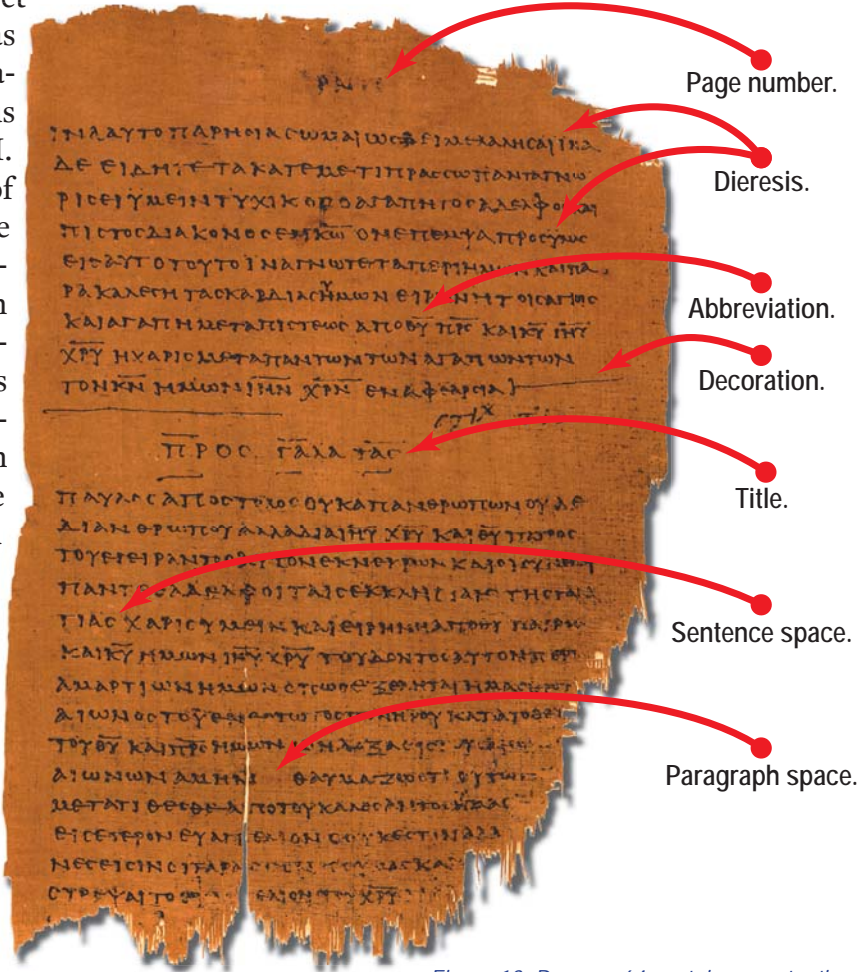 ΙΝΑΑΥΤΟΠΑΡΗϹΙΑϹΩΜΑΙΩϹΔΕΙΜΕΛΑΛΗϹΑΙΪΝΑ
ΔΕ ΕΙΔΗΤΕΤΑΚΑΤΕΜΕΤΙΠΡΑϹϹΩΠΑΝΤΑΓΝΩ
ΡΙϹΕΙΫΜΕΙΝΤΥΧΙΚΟϹΟΑΓΑΠΗΤΟϹΑΔΕΛΦΟϹΚΑΙ
ΠΙϹΤΟϹΔΙΑΚΟΝΟϹΕΝΚ̅Ω̅ ΟΝΕΠΕΜΨΑΠΡΟϹΫΜΑϹ
ΕΙϹΑΥΤΟΤΟΥΤΟΙΝΑΓΝΩΤΕΤΑΠΕΡΙΗΜΩΝΚΑΙΠΑ
ΡΑΚΑΛΕϹΗΤΑϹΚΑΡΔΙΑϹΗΜΩΝ ΕΙΡΗΝΗΤΟΙϹΑΓΙΟΙϹ
ΚΑΙΑΓΑΠΗΜΕΤΑΠΙϹΤΕΩϹ ΑΠΟΘ̅Υ̅ Π̅Ρ̅Ϲ̅ ΚΑΙΚ̅Υ̅ Ι̅Η̅Υ̅
Χ̅Ρ̅Υ̅ ΗΧΑΡΙϹΜΕΤΑΠΑΝΤΩΝΤΩΝΑΓΑΠΩΝΤΩΝ
ΤΟΝΚ̅Ν̅ ΗΜΩΝΙ̅Η̅Ν̅ Χ̅Ρ̅Ν̅ ΕΝΑΦΘΑΡϹΙΑ
ΠΡΟϹ ΓΑΛΑΤΑϹ
ΠΑΥΛΟϹΑΠΟϹΤΟΛΟϹΟΥΚΑΠΑΝΘΡΩΠΩΝΟΥΔΕ
ΔΙΑΝΘΡΩΠΟΥΑΛΛΑΔΙΑΙ̅Η̅Υ̅ Χ̅Ρ̅Υ̅ ΚΑΙΘ̅Υ̅ ΠΑΤΡΟϹ
ΤΟΥΕΓΕΙΡΑΝΤΟϹΑΥΤΟΝΕΚΝΕΚΡΩΝ ΚΑΙΟΙϹΥΝΕΜΟΙ
ΠΑΝΤΕϹΑΔΕΛΦΟΙΤΑΙϹΕΚΚΛΗϹΙΑΙϹ ΤΗϹΓΑΛΑ
ΤΙΑϹ ΧΑΡΙϹΥΜΕΙΝ ΚΑΙΕΙΡΗΝΗΑΠΟΘ̅Υ̅ ΠΑΤΡΟϹ
ΚΑΙΚ̅Υ̅ ΗΜΩΝ Ι̅Η̅Υ̅ Χ̅Ρ̅Υ̅ ΤΟΥΔΟΝΤΟϹΑΥΤΟΝΠΕΡΙ
ΑΜΑΡΤΙΩΝΗΜΩΝΟΠΩϹΕΞΕΛΗΤΑΙΗΜΑϹΕΚΤ
ΑΙΩΝΟϹΤΟΥΕΝΕϹΤΩΤΟϹΠΟΝΗΡΟΥ ΚΑΤΑΤΟΘΕΛ
ΤΟΥΘ̅Υ̅ ΚΑΙΠ̅Ρ̅Ϲ̅ ΗΜΩΝ
ΑΙΩΝΩΝΑΜΗΝ ΘΑΥΜΑΖΩΟΤΙ ΟΥΤΩ
ΜΕΤΑΤΙΘΕϹΘΕΑΠΟΤΟΥΚΑΛΕϹΑΝΤΟϹΥΜΑϹ
ΕΙϹΕΤΕΡΟΝ ΕΥΑΓΓΕΛΙΟΝ ΟΟΥΚΕϹΤΙΝΑΛΛ
Page number.
Dieresis.
Abbreviation.
Decoration.
Title.
Sentence space.
Paragraph space.